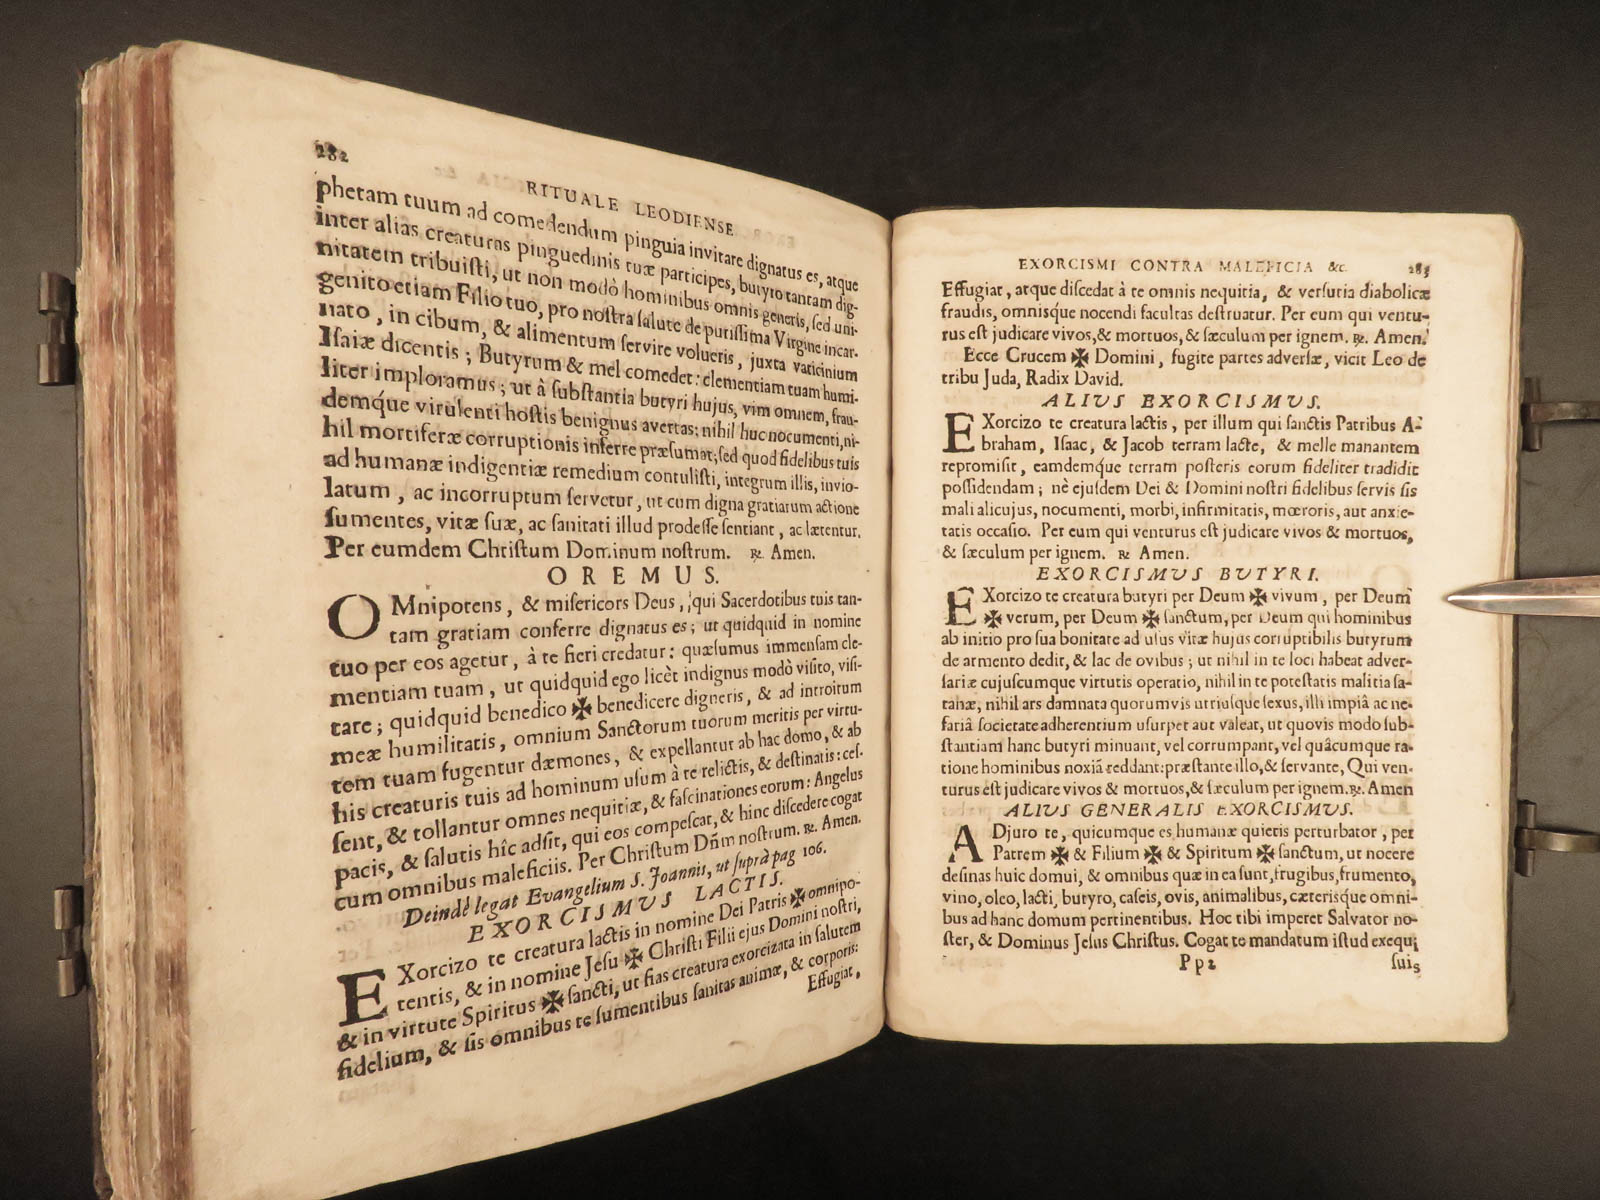 282
RITUALE LEODIENSE
phetam tuum ad comedendum pinguia invitare dignatus es, atque
inter alias creaturas pinguedinis tuæ participes, butyro tantam dig-
nitatem tribuiſti, ut non modò hominibus omnis generis, ſed uni-
genito etiam Filio tuo, pro noſtra ſalute de puriſſima Virgine incar-
nato, in cibum, & alimentum ſervire volueris, juxta vaticinium
Iſaiæ dicentis; Butyrum & mel comedet: clementiam tuam humi-
liter imploramus; ut à ſubſtantia butyri hujus, vim omnem, frau-
demque virulenti hoſtis benignus avertas; nihil huc nocumenti, ni-
hil mortiferæ corruptionis inferre præſumat; ſed quod fidelibus tuis
ad humanæ indigentiæ remedium contuliſti, integrum illis, invio-
latum, ac incorruptum ſervetur, ut cum digna gratiarum actione
ſumentes, vitæ ſuæ, ac ſanitati illud prodeſſe ſentiant, ac lætentur.
Per eumdem Chriſtum Dominum noſtrum. ℟. Amen.
OREMUS.
OMnipotens, & miſericors Deus, qui Sacerdotibus tuis tan-
tam gratiam conferre dignatus es; ut quidquid in nomine
tuo per eos agetur, à te fieri credatur: quæſumus immenſam cle-
mentiam tuam, ut quidquid ego licèt indignus modò viſito, viſi-
tare; quidquid benedico ✠ benedicere digneris, & ad introitum
meæ humilitatis, omnium Sanctorum tuorum meritis per virtu-
tem tuam fugentur dæmones, & expellantur ab hac domo, & ab
his creaturis tuis ad hominum uſum à te relictis, & deſtinatis: ceſ-
ſent, & tollantur omnes nequitiæ, & faſcinationes eorum: Angelus
pacis, & ſalutis hîc adſit, qui eos compeſcat, & hinc diſcedere cogat
cum omnibus maleficiis. Per Chriſtum Dñm noſtrum. ℟. Amen.
Deindè legat Evangelium S. Joannis, ut ſuprà pag 106.
EXORCISMUS LACTIS.
EXorcizo te creatura lactis in nomine Dei Patris ✠ omnipo-
tentis, & in nomine Jeſu ✠ Chriſti Filii ejus Domini noſtri,
& in virtute Spiritus ✠ ſancti, ut fias creatura exorcizata in ſalutem
fidelium, & ſis omnibus te ſumentibus ſanitas animæ, & corporis:
Effugiat,
EXORCISMI CONTRA MALEFICIA &c. 283
Effugiat, atque diſcedat à te omnis nequitia, & verſutia diabolicæ
fraudis, omniſque nocendi facultas deſtruatur. Per eum qui ventu-
rus eſt judicare vivos, & mortuos, & ſæculum per ignem. ℟. Amen.
Ecce Crucem ✠ Domini, fugite partes adverſæ, vicit Leo de
tribu Juda, Radix David.
ALIUS EXORCISMUS.
EXorcizo te creatura lactis, per illum qui ſanctis Patribus A-
braham, Iſaac, & Jacob terram lacte, & melle manantem
repromiſit, eamdemque terram poſteris eorum fideliter tradidit
poſſidendam; nè ejuſdem Dei & Domini noſtri fidelibus ſervis ſis
mali alicujus, nocumenti, morbi, infirmitatis, mœroris, aut anxie-
tatis occaſio. Per eum qui venturus eſt judicare vivos & mortuos,
& ſæculum per ignem. ℟ Amen.
EXORCISMUS BUTYRI.
EXorcizo te creatura butyri per Deum ✠ vivum, per Deum
✠ verum, per Deum ✠ ſanctum, per Deum qui hominibus
ab initio pro ſua bonitate ad uſus vitæ hujus corruptibilis butyrum
de armento dedit, & lac de ovibus; ut nihil in te loci habeat adver-
ſariæ cujuſcumque virtutis operatio, nihil in te poteſtatis malitia ſa-
tanæ, nihil ars damnata quorumvis utriuſque ſexus, illi impiâ ac ne-
fariâ ſocietate adherentium uſurpet aut valeat, ut quovis modo ſub-
ſtantiam hanc butyri minuant, vel corrumpant, vel quâcumque ra-
tione hominibus noxiā reddant: præſtante illo, & ſervante, Qui ven-
turus eſt judicare vivos & mortuos, & ſæculum per ignem. ℟. Amen
ALIUS GENERALIS EXORCISMUS.
ADjuro te, quicumque es humanæ quietis perturbator, per
Patrem ✠ & Filium ✠ & Spiritum ✠ ſanctum, ut nocere
deſinas huic domui, & omnibus quæ in ea ſunt, frugibus, frumento,
vino, oleo, lacti, butyro, caſeis, ovis, animalibus, cæteriſque omni-
bus ad hanc domum pertinentibus. Hoc tibi imperet Salvator no-
ſter, & Dominus Jeſus Chriſtus. Cogat te mandatum iſtud exequi
Pp2
ſuis